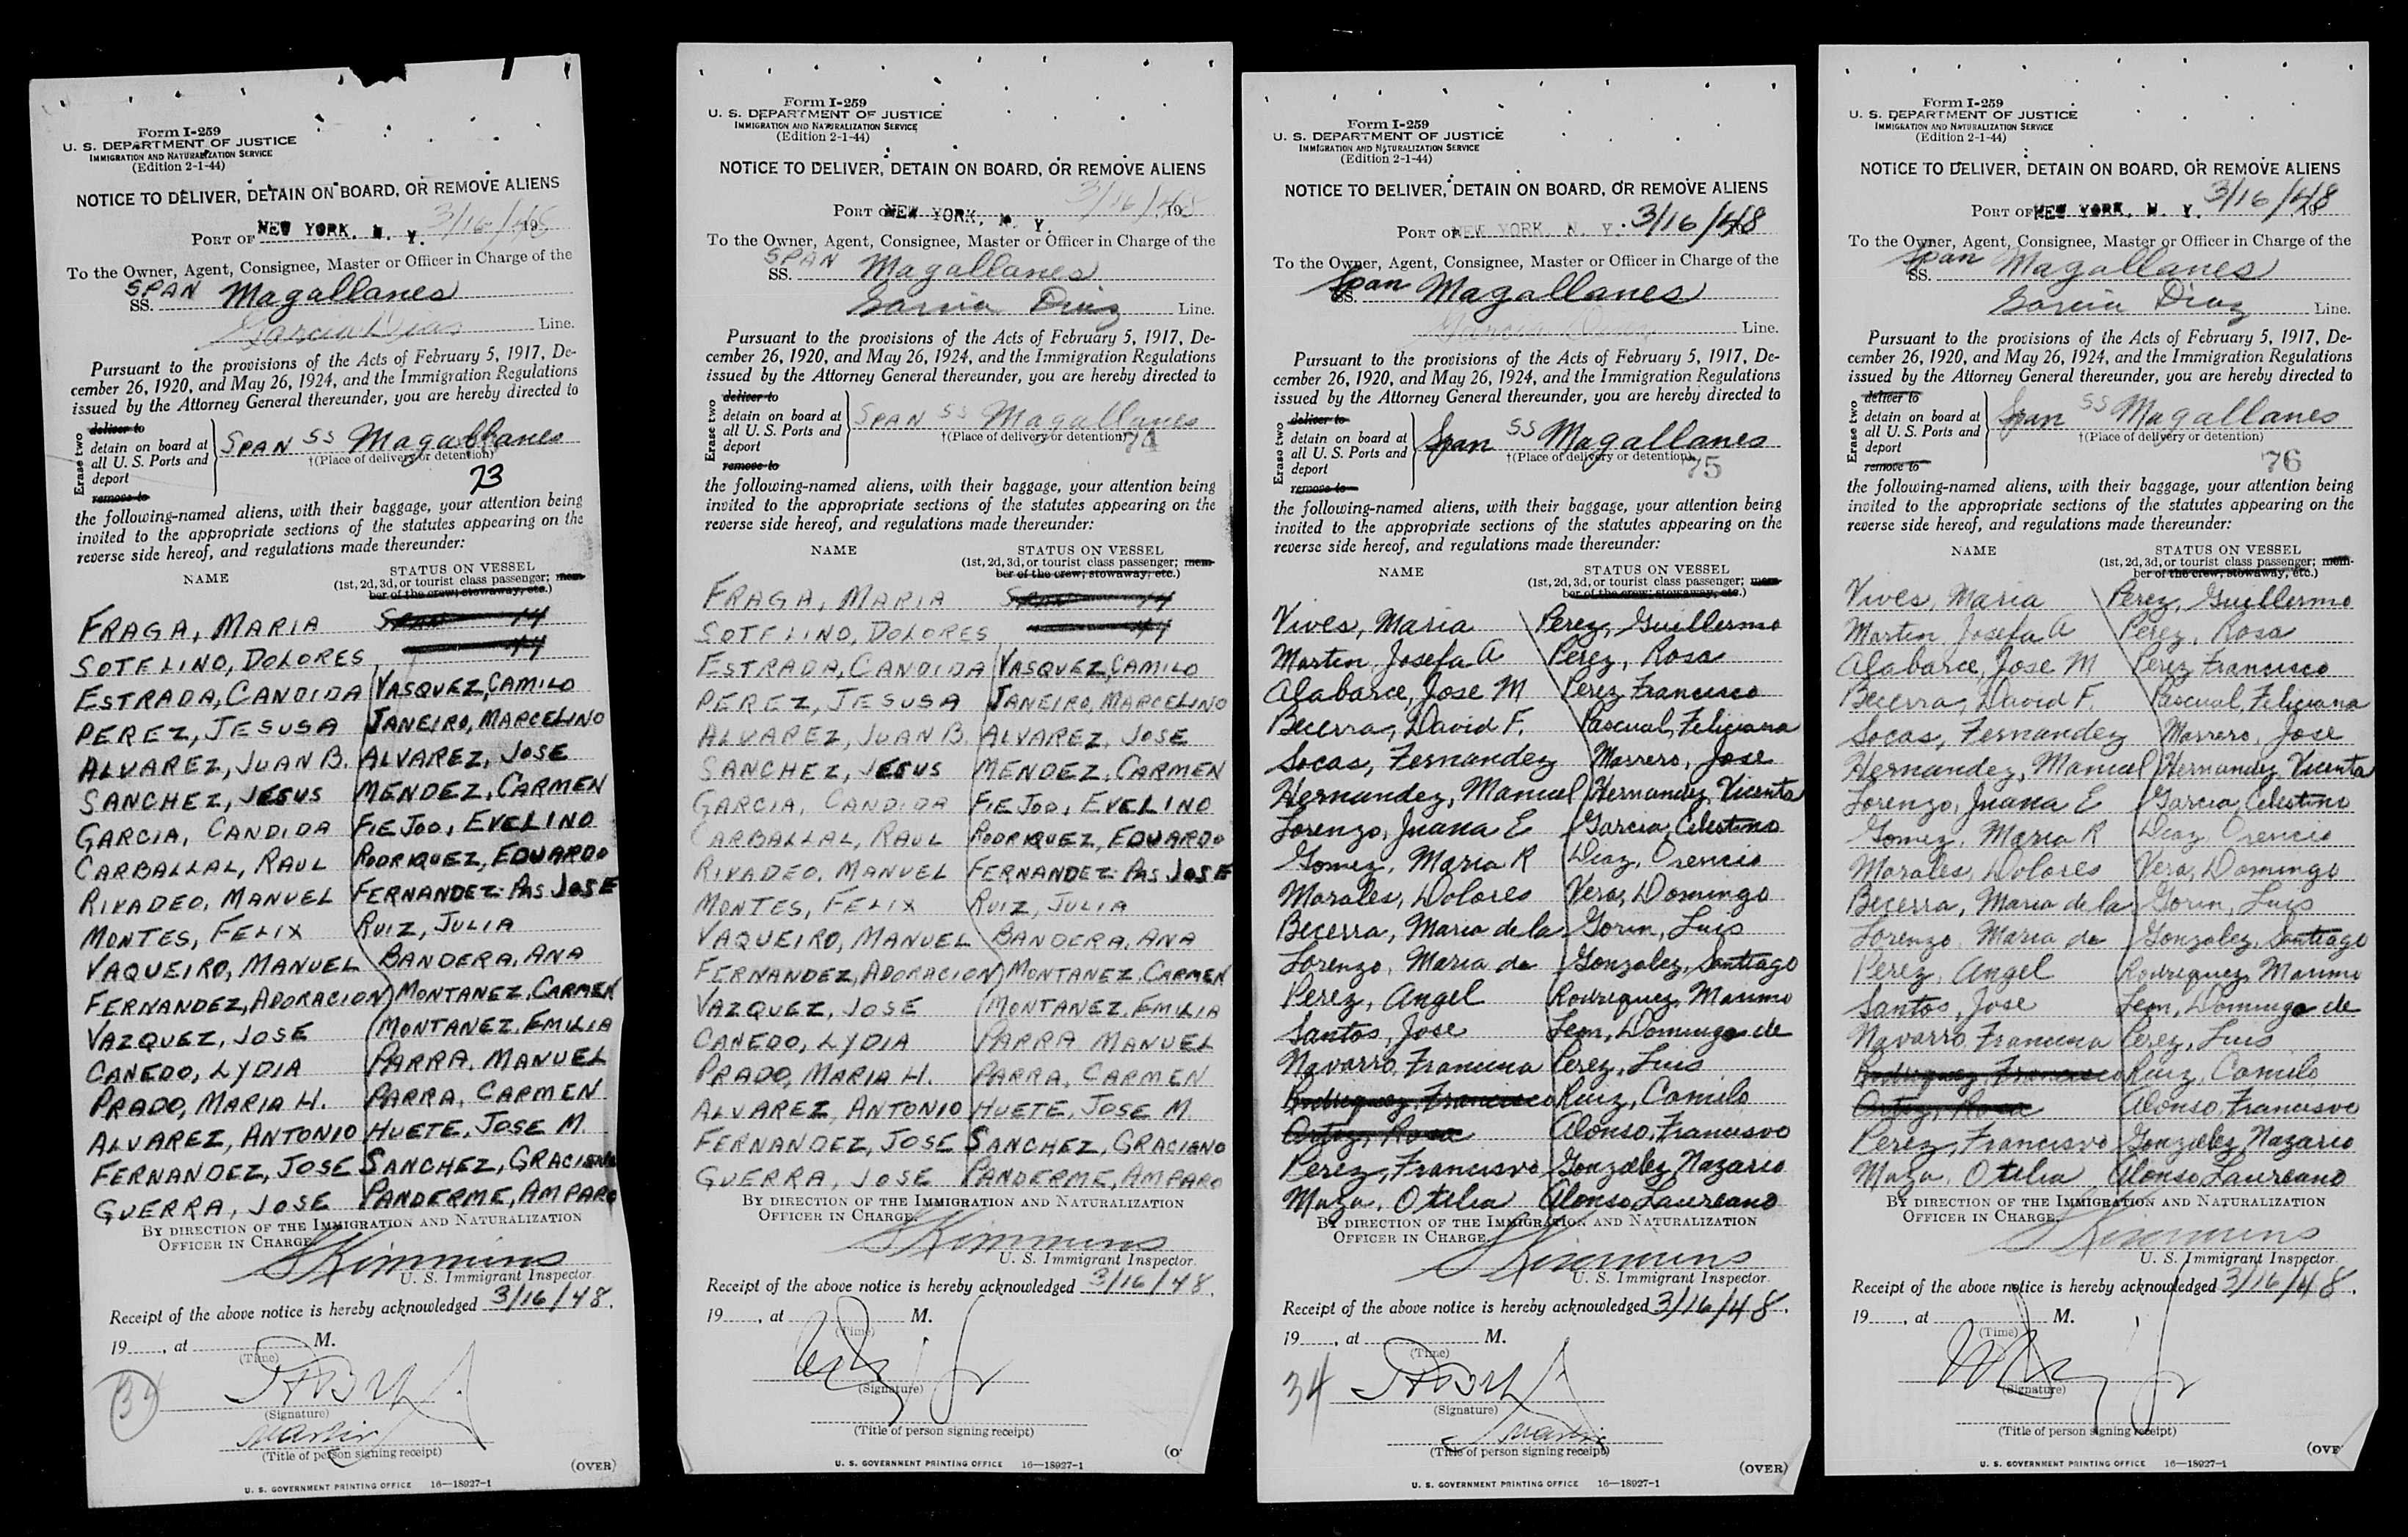 Form I-259
U. S. DEPARTMENT OF JUSTICE
IMMIGRATION AND NATURALIZATION SERVICE
(Edition 2-1-44)
NOTICE TO DELIVER, DETAIN ON BOARD, OR REMOVE ALIENS
PORT OF NEW YORK, N. Y. 3/16/48 19
To the Owner, Agent, Consignee, Master or Officer in Charge of the
SPAN
SS. Magallanes
Garcia Dias Line.
Pursuant to the provisions of the Acts of February 5, 1917, De-
cember 26, 1920, and May 26, 1924, and the Immigration Regulations
issued by the Attorney General thereunder, you are hereby directed to
Erase two
deliver to
detain on board at
all U. S. Ports and
deport
remove to
SPAN SS Magallanes
†(Place of delivery or detention)
73
the following-named aliens, with their baggage, your attention being
invited to the appropriate sections of the statutes appearing on the
reverse side hereof, and regulations made thereunder:
NAME STATUS ON VESSEL
(1st, 2d, 3d, or tourist class passenger; mem-
ber of the crew; stowaway, etc.)
FRAGA, MARIA
SOTELINO, DOLORES
ESTRADA, CANDIDA VASQUEZ, CAMILO
PEREZ, JESUSA JANEIRO, MARCELINO
ALVAREZ, JUAN B. ALVAREZ, JOSE
SANCHEZ, JESUS MENDEZ, CARMEN
GARCIA, CANDIDA FIEJOO, EVELINO
CARBALLAL, RAUL RODRIQUEZ, EDUARDO
RIVADEO, MANUEL FERNANDEZ-PAS JOSE
MONTES, FELIX RUIZ, JULIA
VAQUEIRO, MANUEL BANDERA, ANA
FERNANDEZ, ADORACION MONTANEZ, CARMEN
VAZQUEZ, JOSE MONTANEZ, EMILIA
CANEDO, LYDIA PARRA, MANUEL
PRADO, MARIA H. PARRA, CARMEN
ALVAREZ, ANTONIO HUETE, JOSE M.
FERNANDEZ, JOSE SANCHEZ, GRACIANO
GUERRA, JOSE PANDERME, AMPARO
BY DIRECTION OF THE IMMIGRATION AND NATURALIZATION
OFFICER IN CHARGE.
Kimmins
U. S. Immigrant Inspector.
Receipt of the above notice is hereby acknowledged 3/16/48.
19 , at M.
(Time)
34
(Signature)
(Title of person signing receipt)
(OVER)
U. S. GOVERNMENT PRINTING OFFICE 16—18927-1
Form I-259
U. S. DEPARTMENT OF JUSTICE
IMMIGRATION AND NATURALIZATION SERVICE
(Edition 2-1-44)
NOTICE TO DELIVER, DETAIN ON BOARD, OR REMOVE ALIENS
PORT OF NEW YORK, N. Y. 3/16/48 19
To the Owner, Agent, Consignee, Master or Officer in Charge of the
SPAN
SS. Magallanes
Garcia Diaz Line.
Pursuant to the provisions of the Acts of February 5, 1917, De-
cember 26, 1920, and May 26, 1924, and the Immigration Regulations
issued by the Attorney General thereunder, you are hereby directed to
Erase two
deliver to
detain on board at
all U. S. Ports and
deport
remove to
SPAN SS Magallanes
†(Place of delivery or detention)
74
the following-named aliens, with their baggage, your attention being
invited to the appropriate sections of the statutes appearing on the
reverse side hereof, and regulations made thereunder:
NAME STATUS ON VESSEL
(1st, 2d, 3d, or tourist class passenger; mem-
ber of the crew; stowaway, etc.)
FRAGA, MARIA
SOTELINO, DOLORES
ESTRADA, CANDIDA VASQUEZ, CAMILO
PEREZ, JESUSA JANEIRO, MARCELINO
ALVAREZ, JUAN B. ALVAREZ, JOSE
SANCHEZ, JESUS MENDEZ, CARMEN
GARCIA, CANDIDA FIEJOO, EVELINO
CARBALLAL, RAUL RODRIQUEZ, EDUARDO
RIVADEO, MANUEL FERNANDEZ-PAS JOSE
MONTES, FELIX RUIZ, JULIA
VAQUEIRO, MANUEL BANDERA, ANA
FERNANDEZ, ADORACION MONTANEZ, CARMEN
VAZQUEZ, JOSE MONTANEZ, EMILIA
CANEDO, LYDIA PARRA MANUEL
PRADO, MARIA H. PARRA, CARMEN
ALVAREZ, ANTONIO HUETE, JOSE M.
FERNANDEZ, JOSE SANCHEZ, GRACIANO
GUERRA, JOSE PANDERME, AMPARO
BY DIRECTION OF THE IMMIGRATION AND NATURALIZATION
OFFICER IN CHARGE.
Kimmins
U. S. Immigrant Inspector.
Receipt of the above notice is hereby acknowledged 3/16/48.
19 , at M.
(Time)
(Signature)
(Title of person signing receipt)
(O
U. S. GOVERNMENT PRINTING OFFICE 16—18927-1
Form I-259
U. S. DEPARTMENT OF JUSTICE
IMMIGRATION AND NATURALIZATION SERVICE
(Edition 2-1-44)
NOTICE TO DELIVER, DETAIN ON BOARD, OR REMOVE ALIENS
PORT OF NEW YORK, N. Y. 3/16/48
To the Owner, Agent, Consignee, Master or Officer in Charge of the
Span
SS. Magallanes
Garcia Diaz Line.
Pursuant to the provisions of the Acts of February 5, 1917, De-
cember 26, 1920, and May 26, 1924, and the Immigration Regulations
issued by the Attorney General thereunder, you are hereby directed to
Erase two
deliver to
detain on board at
all U. S. Ports and
deport
remove to
Span SS Magallanes
†(Place of delivery or detention)
75
the following-named aliens, with their baggage, your attention being
invited to the appropriate sections of the statutes appearing on the
reverse side hereof, and regulations made thereunder:
NAME STATUS ON VESSEL
(1st, 2d, 3d, or tourist class passenger; mem-
ber of the crew; stowaway, etc.)
Vives, Maria Perez, Guillermo
Martin, Josefa A Perez, Rosa
Alabarce, Jose M Perez Francisco
Becerra, David F. Pascual, Feliciana
Socas, Fernandez Marrero, Jose
Hernandez, Manuel Hernandez, Vicenta
Lorenzo, Juana E Garcia, Celestino
Gomez, Maria R Diaz, Orencio
Morales, Dolores Vera, Domingo
Becerra, Maria de la Gorin, Luis
Lorenzo, Maria de Gonzalez, Santiago
Perez, Angel Rodriquez, Maximo
Santos, Jose Leon, Domingo de
Navarro, Francisca Perez, Luis
Rodriquez, Francisco Ruiz, Camilo
Ortiz, Rosa Alonso, Francisvo
Perez, Francisvo Gonzalez, Nazario
Maza, Otilia Alonso, Laureano
BY DIRECTION OF THE IMMIGRATION AND NATURALIZATION
OFFICER IN CHARGE
Kimmins
U. S. Immigrant Inspector.
Receipt of the above notice is hereby acknowledged 3/16/48.
19 , at M.
(Time)
34
(Signature)
(Title of person signing receipt)
(OVER)
U. S. GOVERNMENT PRINTING OFFICE 16—18927-1
Form I-259
U. S. DEPARTMENT OF JUSTICE
IMMIGRATION AND NATURALIZATION SERVICE
(Edition 2-1-44)
NOTICE TO DELIVER, DETAIN ON BOARD, OR REMOVE ALIENS
PORT OF NEW YORK, N. Y. 3/16/48 19
To the Owner, Agent, Consignee, Master or Officer in Charge of the
Span
SS. Magallanes
Garcia Diaz Line.
Pursuant to the provisions of the Acts of February 5, 1917, De-
cember 26, 1920, and May 26, 1924, and the Immigration Regulations
issued by the Attorney General thereunder, you are hereby directed to
Erase two
deliver to
detain on board at
all U. S. Ports and
deport
remove to
Span SS Magallanes
†(Place of delivery or detention)
76
the following-named aliens, with their baggage, your attention being
invited to the appropriate sections of the statutes appearing on the
reverse side hereof, and regulations made thereunder:
NAME STATUS ON VESSEL
(1st, 2d, 3d, or tourist class passenger; mem-
ber of the crew; stowaway, etc.)
Vives, Maria Perez, Guillermo
Martin, Josefa A Perez, Rosa
Alabarce, Jose M Perez Francisco
Becerra, David F. Pascual, Feliciana
Socas, Fernandez Marrero, Jose
Hernandez, Manuel Hernandez, Vicenta
Lorenzo, Juana E Garcia, Celestino
Gomez, Maria R Diaz, Orencio
Morales, Dolores Vera, Domingo
Becerra, Maria de la Gorin, Luis
Lorenzo, Maria de Gonzalez, Santiago
Perez, Angel Rodriquez, Maximo
Santos, Jose Leon, Domingo de
Navarro, Francisca Perez, Luis
Rodriquez, Francisco Ruiz, Camilo
Ortiz, Rosa Alonso, Francisvo
Perez, Francisvo Gonzalez, Nazario
Maza, Otilia Alonso, Laureano
BY DIRECTION OF THE IMMIGRATION AND NATURALIZATION
OFFICER IN CHARGE.
Kimmins
U. S. Immigrant Inspector.
Receipt of the above notice is hereby acknowledged 3/16/48.
19 , at M.
(Time)
(Signature)
(Title of person signing receipt)
(OVE
U. S. GOVERNMENT PRINTING OFFICE 16—18927-1